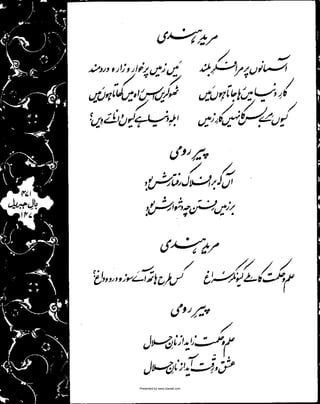 مریدِ ہندی
آسمانوں پر مرا فکرِ بلند
میں زمیں پر خوار و زار و دردمند
کارِ دنیا میں رہا جاتا ہوں میں
ٹھوکریں اس راہ میں کھاتا ہوں میں
کیوں مرے بس کا نہیں کارِ زمیں
ابلہِ دنیا ہے کیوں دانائے دیں؟
پیرِ رومی
آں کہ بر افلاک رفتارش بود
بر زمیں رفتن چہ دشوارش بود
مریدِ ہندی
علم و حکمت کا ملے کیونکر سراغ
کس طرح ہاتھ آئے سوز و درد و داغ؟
پیرِ رومی
علم و حکمت زاید از نانِ حلال
عشق و رقت آید از نانِ حلال
۴۷۱
بالِ جبریل
۱۴۷
Presented by www.ziaraat.com